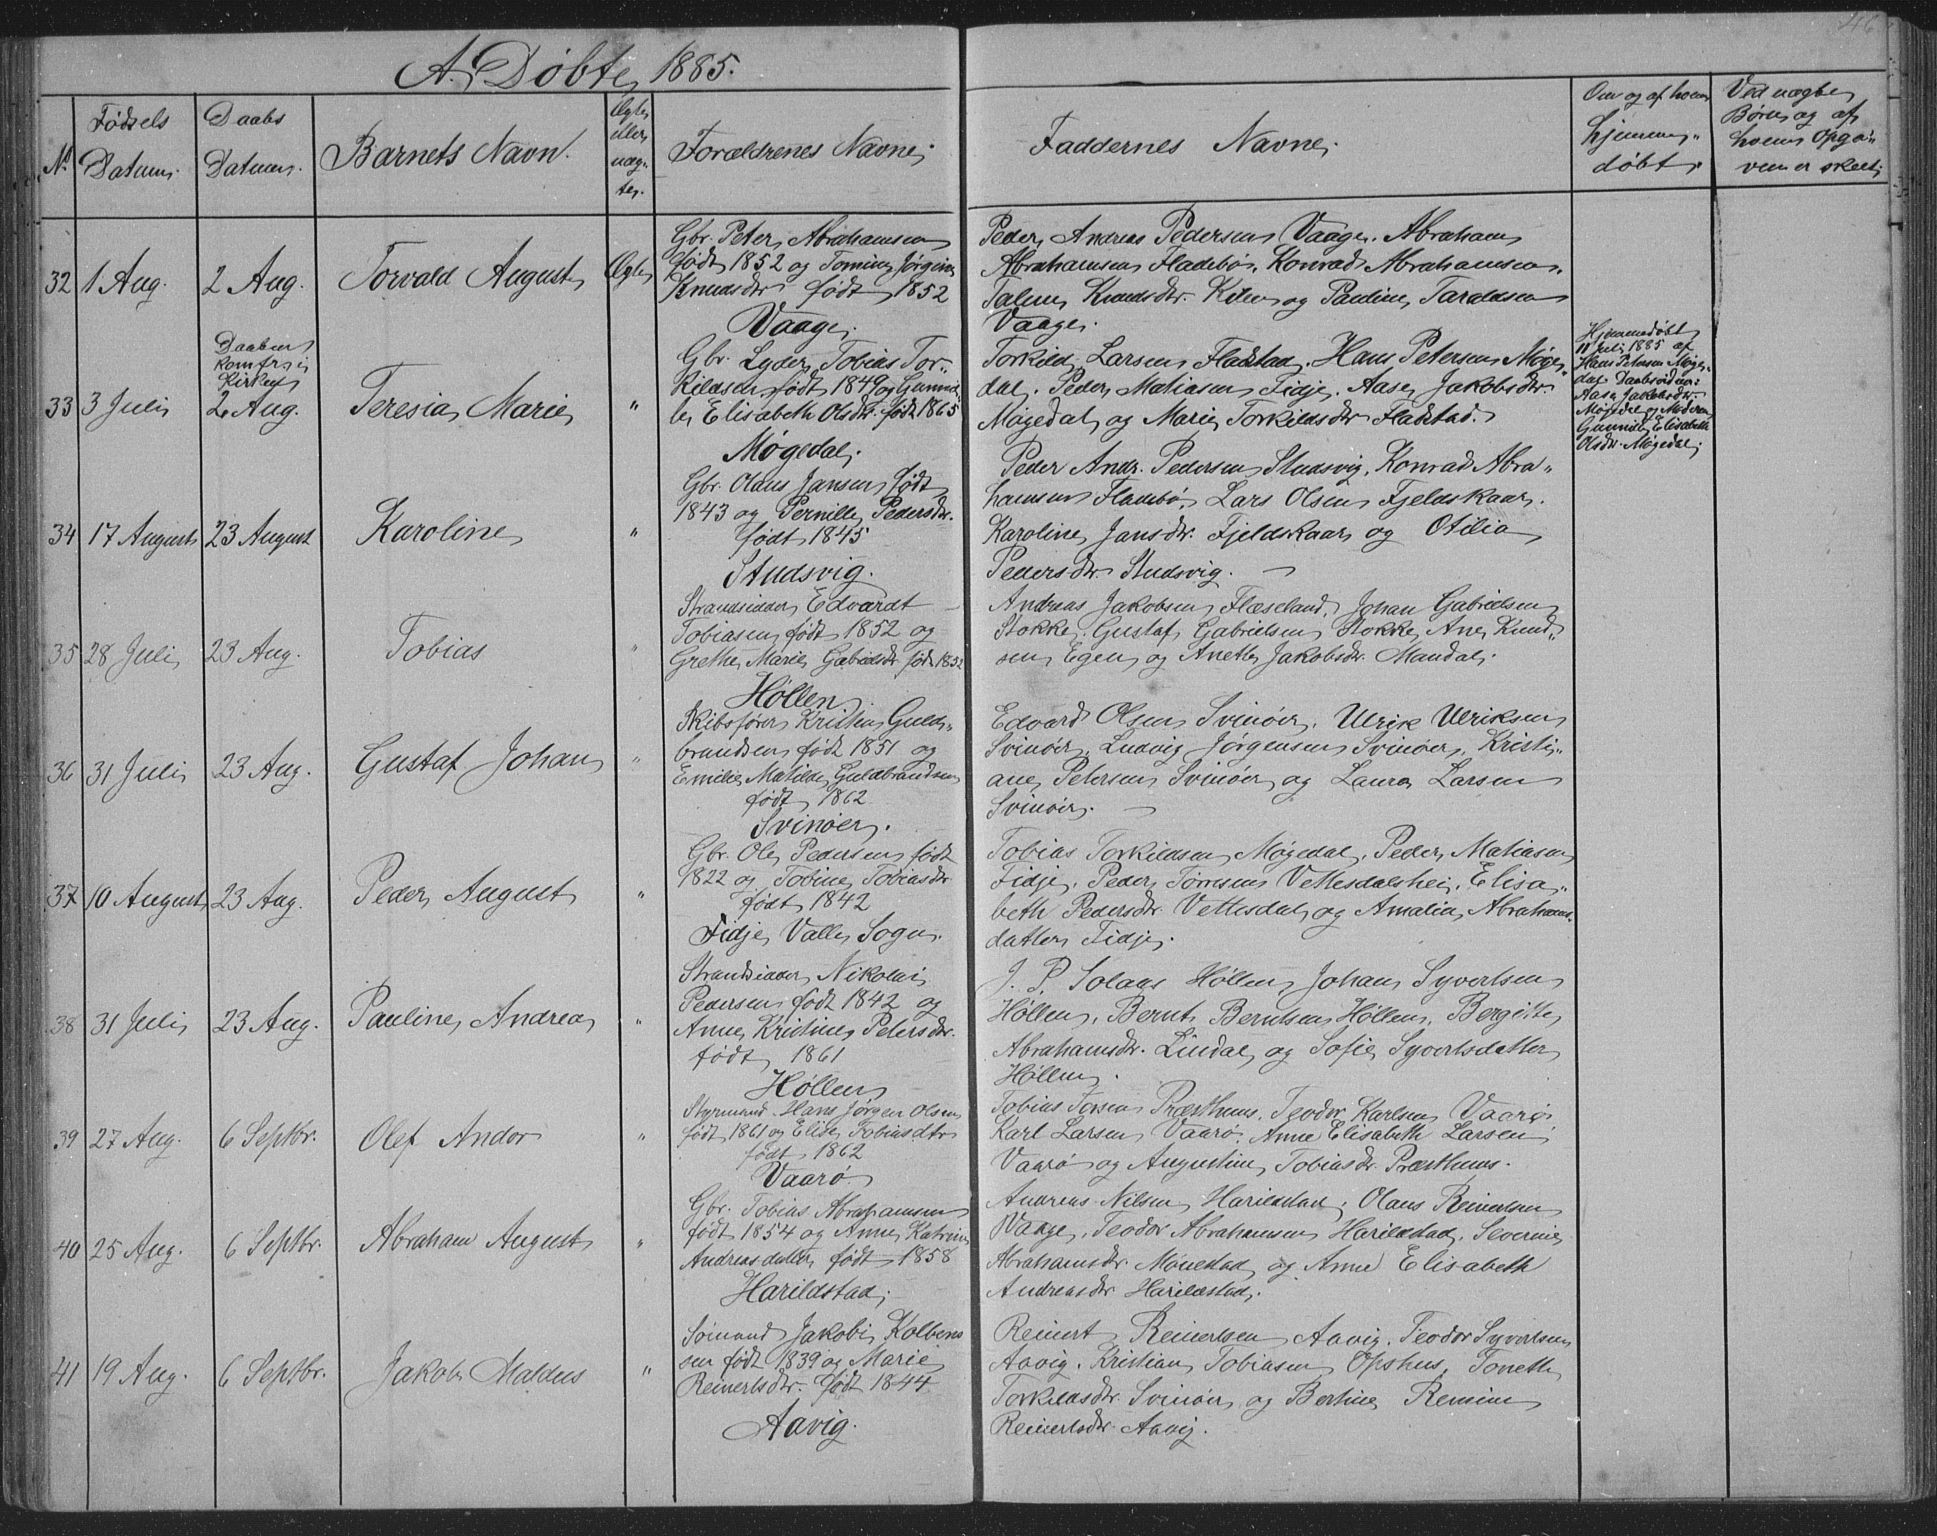 46
A. Døbte 1885.
No
Fødsels Datum.
Daabs Datum.
Barnets Navn.
Ægte eller uægte.
Forældrenes Navne.
Faddernes Navne.
Om og af hvem hjemmedøbt.
Ved uægte Børn og af hvem Opgaven er skeet.
32
1 Aug.
2 Aug.
Torvald August
Ægte
Gbr. Peter Abrahamsen
født 1852 og Tomine Jørgine
Knudsdtr. født 1852
Vaage.
Peder Andreas Pedersen Vaage. Abraham
Abrahamsen Fladebø. Konrad Abrahamsen.
Knudsdtr. Kilen og Pauline Taraldsen
Vaage.
33
3 Juli
Daaben
komfr. i
Kirken
2 Aug.
Teresia Marie
"
Gbr. Lyder Tobias Tor-
kildsen født 1849 og Gunnil-
le Elisabeth Olsdtr. født 1865
Møgedal.
Torkild Larsen Fladstad. Hans Petersen Møge-
dal. Peder Matiasen Fidje. Aase Jakobsdtr.
Møgedal og Marie Torkildsdtr. Fladstad.
Hjemmedøbt
11 Juli 1885 af
Hans Petersen Møge-
dal.
Aase Jakobsdtr.
Møgedal og Moderen
Gunnille Elisabeth
Olsdtr. Møgedal.
34
17 August
23 August
Karoline
"
Gbr. Olaus Jansen født
1843 og Pernille Pedersdtr.
født 1845
Studsvig.
Peder Andr. Pedersen Studsvig. Konrad Abra-
hamsen Fladebø. Lars Olsen Fjeldskaar.
Karoline Jansdtr. Fjeldskaar og Otilia
Pedersdtr. Studsvig.
35
28 Juli
23 Aug.
Tobias
"
Strandsidder Edvardt
Tobiasen født 1852 og
Grethe Marie Gabrielsdtr. født 1852
Høllen.
Andreas Jakobsen Flæseland. Johan Gabrielsen
Stokke. Gustaf Gabrielsen Stokke, Ane Knud-
sen Egen og Anette Jakobsdtr. Mandal.
36
31 Juli
23 Aug.
Gustaf Johan
"
Skibsfører Kristen Guld-
brandsen født 1851 og
Emilie Matilde Guldbrandsen
født 1862
Svinøer.
Edvard Olsen Svinøer. Ulrik Ulriksen
Svinøer. Ludvig Jørgensen Svinøer. Kristi-
ane Petersen Svinøer og Laura Larsen
Svinøer.
37
10 August
23 Aug.
Peder August
"
Gbr. Ole Pedersen født
1822 og Tobine Tobiasdtr.
født 1842
Fidje Valle Sogn.
Tobias Torkildsen Møgedal. Peder Matiasen
Fidje. Peder Tørresen Vettesdalshei. Elisa-
beth Pedersdtr. Vettesdal og Amalia Abrahams-
datter Fidje.
38
31 Juli
23 Aug.
Pauline Andrea
"
Strandsidder Nikolai
Pedersen født 1842 og
Anne Kristine Petersdtr.
født 1861
Høllen
J. P. Solaas Høllen Johan Syvertsen
Høllen. Bernt Berntsen Høllen. Bergitte
Abrahamsdtr. Lindal og Sofie Syvertsdatter
Høllen.
39
27 Aug.
6 Septbr.
Olef Andor
"
Styrmand Hans Jørgen Olsen
født 1861 og Elise Tobiasdtr
født 1862
Vaarø
Tobias Præsthuus. Teodor Karlsen Vaarø
Karl Larsen Vaarø. Anne Elisabeth Larsen
Vaarø og Augustine Tobiasdtr. Præsthuus.
40
25 Aug.
6 Septbr.
Abraham August
"
Gbr. Tobias Abrahamsen
født 1854 og Anne Katrine
Andreasdatter født 1858
Harildstad.
Andreas Nilsen Harildstad. Olaus Reinertsen
Vaage. Teodor Abrahamsen Harildstad. Severine
Abrahamsdtr. Mønestad og Anne Elisabeth
Andreasdtr Harildstad.
41
19 Aug.
6 Septbr.
Jakob Maldus
"
Sømand Jakob Kolbens
sen født 1839 og Marie
Reinertsdtr. født 1844
Aavig.
Reinert Reinertsen Aavig. Teodor Syvertsen
Aavig. Kristian Tobiasen Opshus. Tonette
Torkildsdtr. Svinøer og Bertine
Reinertsdtr. Aavig.